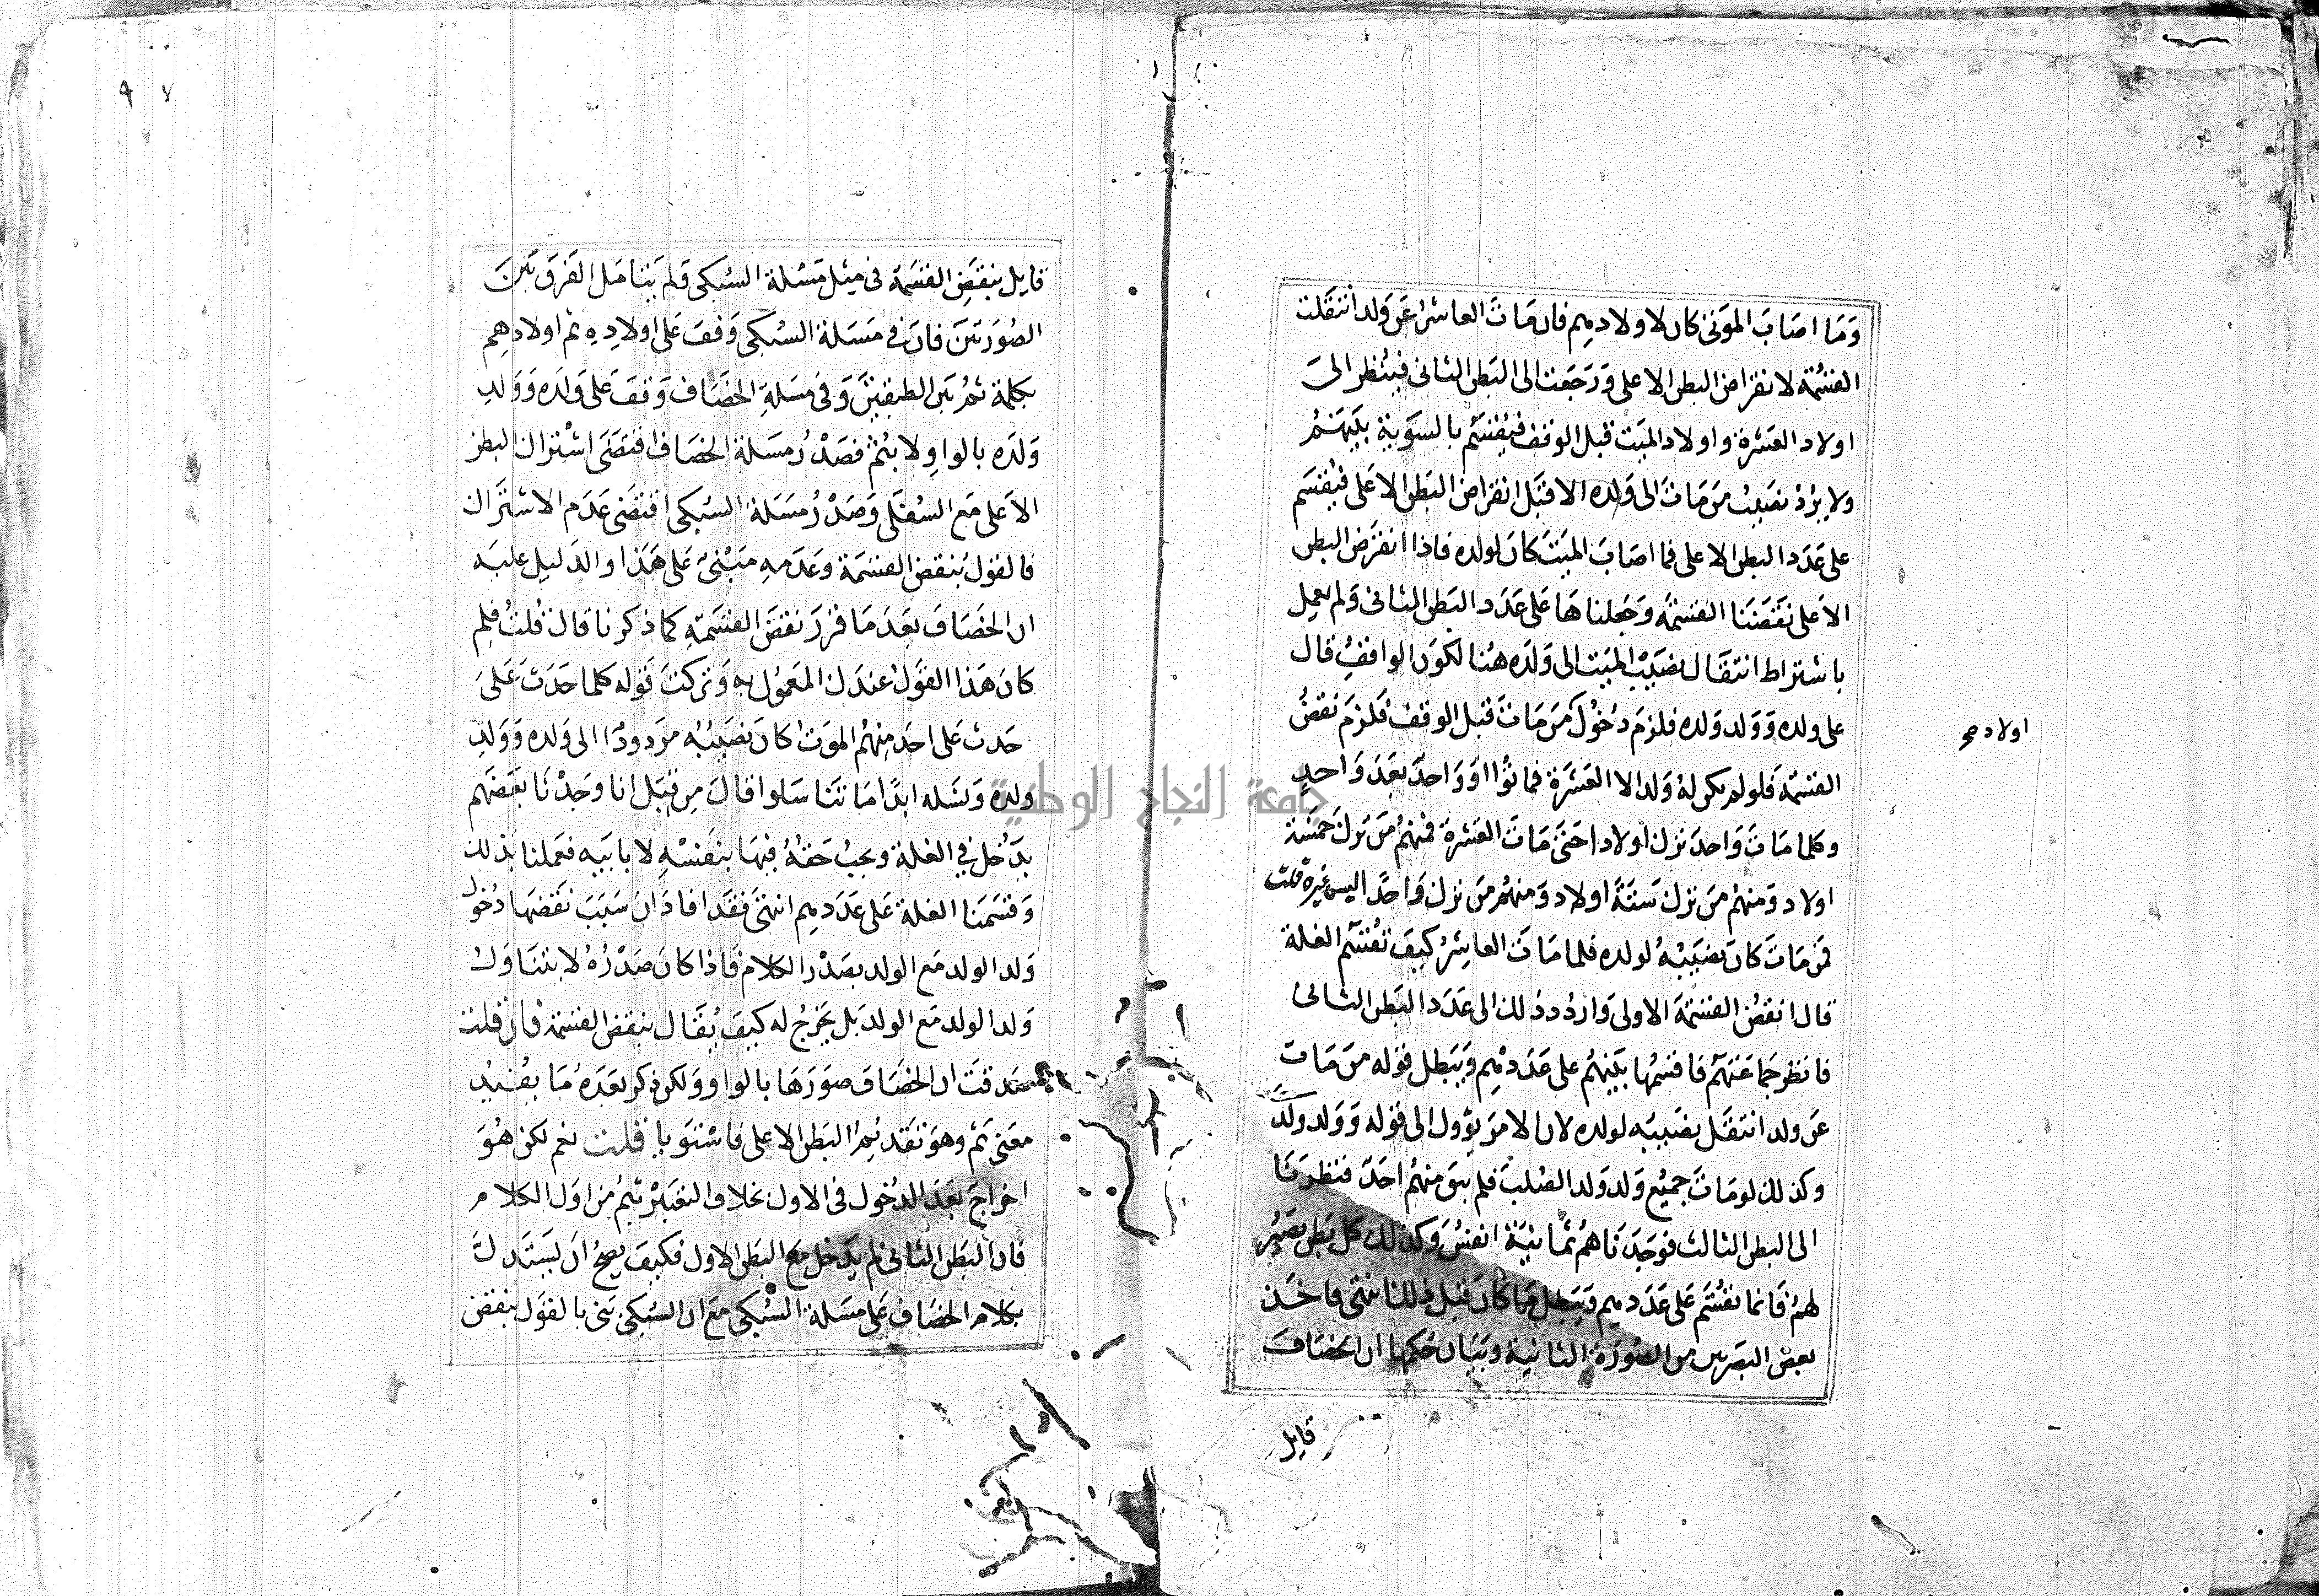 وما اصاب الموتى كان لاولادهم فان مات العاشر عن ولد انتقلت
القسمة لانقراض البطن الاعلى ورجعت الى البطن الثاني فينظر الى
اولاد العشرة واولاد الميت قبل الوقف فيقسم بالسوية بينهم
ولا يرد نصيب من مات الى ولده الا قبل انقراض البطن الاعلى فيقسم
على عدد البطن الاعلى فما اصاب الميت كان لولده فاذا انقرض البطن
الاعلى نقضنا القسمة وجعلناها على عدد البطن الثاني ولم يعمل
باشتراط انتقال نصيب الميت الى ولده هنا لكون الواقف قال
على ولده وولد ولده فلزم دخول من مات قبل الوقف فلزم نقض
اولاد صح
القسمة فلو لم يكن له ولد الا العشرة فماتوا واحدا بعد واحد
وكلما مات واحد ترك اولادا حتى مات العشرة فمنهم من ترك خمسة
اولاد ومنهم من ترك ستة اولاد ومنهم من ترك واحدا اليس غيره قلت
فمن مات كان نصيبه لولده فلما مات العاشر كيف تقسم الغلة
قال انقض القسمة الاولى واردد ذلك الى عدد البطن الثاني
فانظر جماعتهم فاقسمها بينهم على عددهم ويبطل قوله من مات
عن ولد انتقل نصيبه لولده لان الامر يؤول الى قوله وولد ولد
وكذلك لو مات جميع ولد ولد الصلب فلم يبق منهم احد فنظرنا
الى البطن الثالث فوجدناهم ثمانية انفس وكذلك كل بطن يصير
لهم فانما تقسم على عددهم ويبطل ما كان قبل ذلك انتهى فاخذ
بعض العصريين من الصورة الثانية وبيان حكمها ان الخصاف
قايل
٩٧
قايل بنقض القسمة في مثل مسئلة السبكي ولم يتامل الفرق بين
الصورتين فان في مسئلة السبكي وقف على اولاده ثم اولادهم
بكلمة ثم بين الطبقتين وفي مسئلة الخصاف وقف على ولده وولد
ولده بالواو لا بثم فصدر مسئلة الخصاف اقتضى اشتراك البطن
الاعلى مع السفلى وصدر مسئلة السبكي اقتضى عدم الاشتراك
فالقول بنقض القسمة وعدمه مبني على هذا والدليل عليه
ان الخصاف بعد ما قرر نقض القسمة كما ذكرنا قال قلت فلم
كان هذا القول عندك المعمول به وتركت قوله كلما حدث على
حدث على احد منهم الموت كان نصيبه مردودا الى ولده وولد
ولده ونسله ابدا ما تناسلوا قال من قبل انا وجدنا بعضهم
يدخل في الغلة ويجب حقه فيها بنفسه لا بابيه فعملنا بذلك
وقسمنا الغلة على عددهم انتهى فقد افاد ان سبب نقضها دخول
ولد الولد مع الولد بصدر الكلام فاذا كان صدره لا يتناول
ولد الولد مع الولد بل يخرج له كيف يقال بنقض القسمة فان قلت
صدقت ان الخصاف صورها بالواو ولكن ذكر بعده ما يفيد
معنى ثم وهو تقديم البطن الاعلى فاستويا قلت نعم لكن هو
اخراج بعد الدخول في الاول بخلاف التعبير بثم من اول الكلام
فان البطن الثاني لم يدخل مع البطن الاول فكيف يصح ان يستدل
بكلام الخصاف على مسئلة السبكي مع ان السبكي بنى بالقول بنقض
جامعة النجاح الوطنية